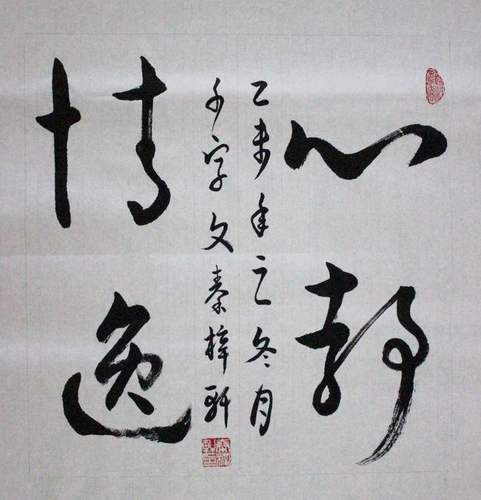 心静
乙未年之冬月
千字文秦梓轩
情逸